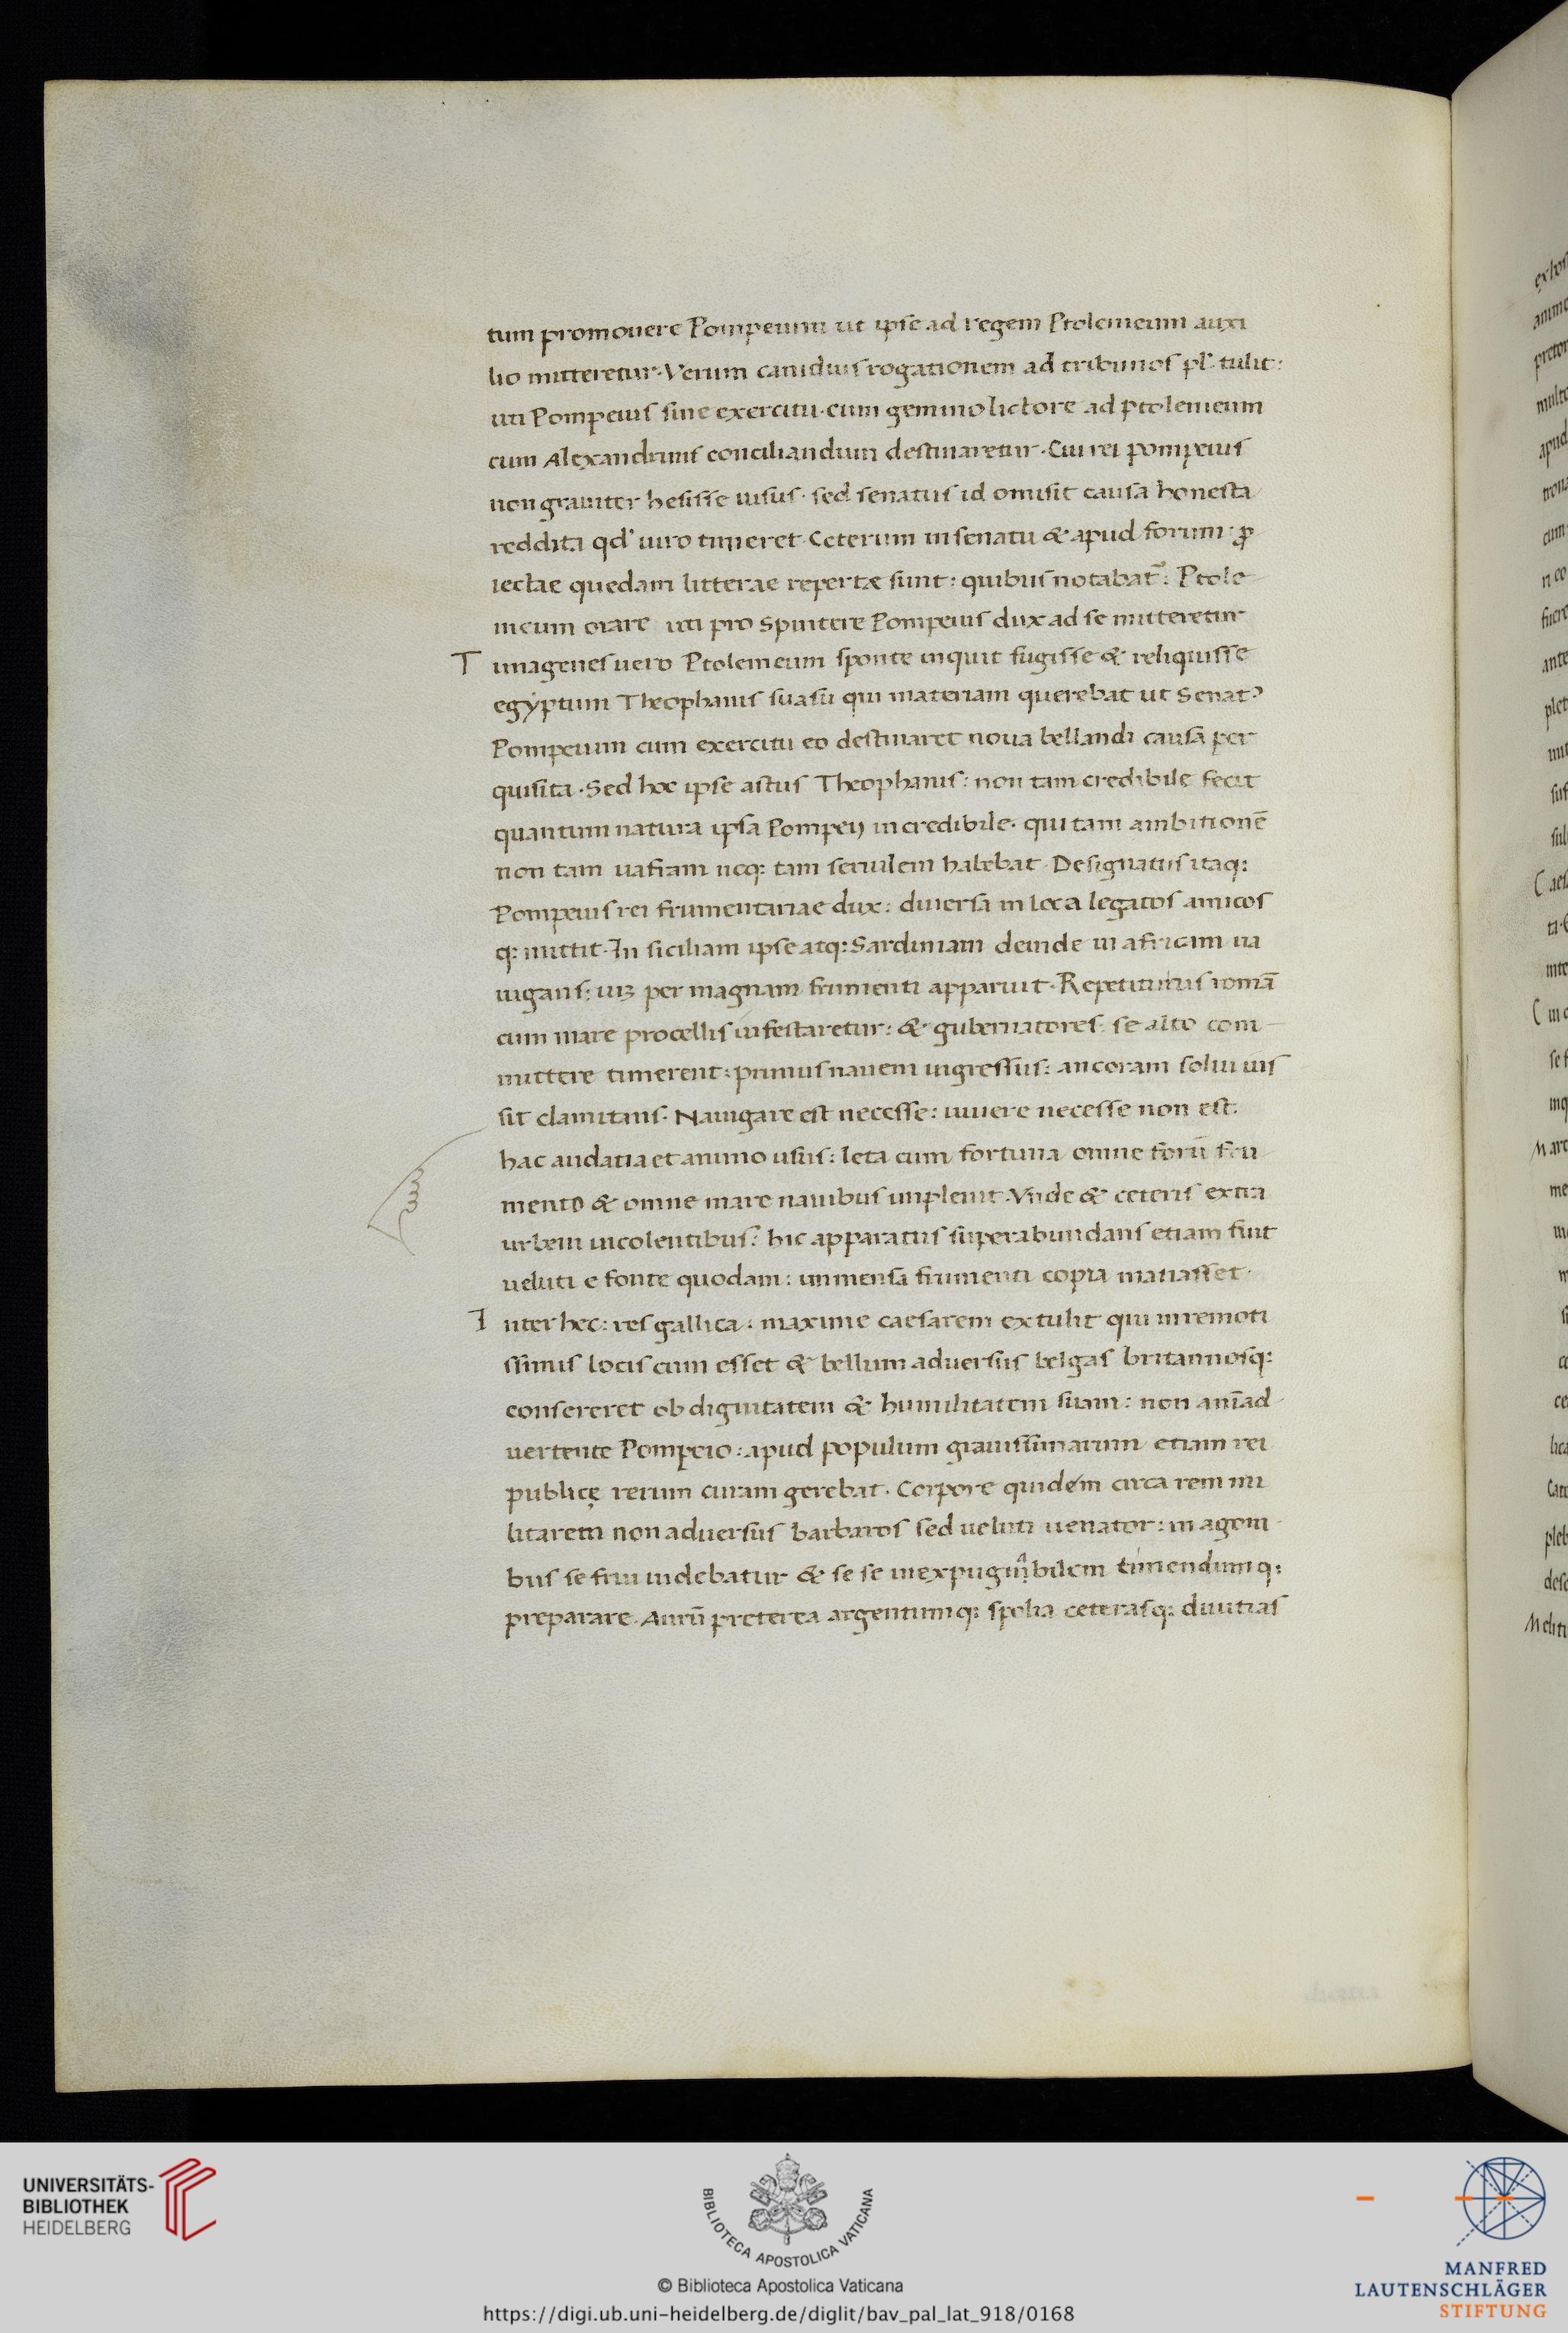 tum promouere Pompeium ut ipse ad regem Ptolemeum auxi
lio mitteretur. Verum canidius rogationem ad tribunos pl. tulit:
uti Pompeius sine exercitu. cum gemino lictore ad ptolemeum
cum Alexandrinis conciliandum destinaretur. Cui rei pompeius
non grauiter hesisse uisus. sed senatus id omisit causa honesta
reddita qd' uiro timeret. Ceterum in senatu & apud forum: p̱ro
iectae quedam litterae repertæ sunt: quibus notabat~: Ptole
meum orare uti pro Spintere Pompeius dux ad se mitteretur
T imagenes uero Ptolemeum sponte inquit fugisse & reliquisse
egyptum Theophanis suasu qui materiam querebat ut Senat9
Pompeium cum exercitu eo destinaret noua bellandi causa per
quisita. Sed hoc ipse astus Theophanis: non tam credibile fecit
quantum natura ipsa Pompeij incredibile. qui tam ambitionē
non tam uafram neq: tam seruilem habebat. Designatus itaq:
Pompeius rei frumentariae dux: diuersa in loca legatos amicos
q: mittit. In siciliam ipse atq: Sardiniam deinde in africam na
uigans: uis per magnam frumenti apparuit. Repetiturus romā
cum mare procellis infestaretur: & gubernatores: se alto com
mittere timerent: primus nauem ingressus: ancoram solui uis
sit clamitans. Nauigare est necesse: uiuere necesse non est.
hac audatia et animo usus: leta cum fortuna omne forū fru
mento & omne mare nauibus impleuit. Vnde & ceteris extra
urbem incolentibus: hic apparatus superabundans etiam fuit
ueluti e fonte quodam: immensa frumenti copia manasset.
I nter hec: res gallica: maxime caesarem extulit qui in remoti
ssimis locis cum esset & bellum aduersus belgas britannosq:
consereret ob dignitatem & humilitatem suam: non anīad
uertente Pompeio: apud populum grauissimarum etiam rei
publicę rerum curam gerebat. Corpore quidem circa rem mi
litarem non aduersus barbaros sed ueluti uenator: in agoni
bus se frui uidebatur & se se inexpugnabilem timendumq:
preparare. Aurū preterea argentumq: spolia ceterasq: diuitias
UNIVERSITÄTS-
BIBLIOTHEK
HEIDELBERG
BIBLIOTECA APOSTOLICA VATICANA
© Biblioteca Apostolica Vaticana
https://digi.ub.uni-heidelberg.de/diglit/bav_pal_lat_918/0168
MANFRED
LAUTENSCHLÄGER
STIFTUNG